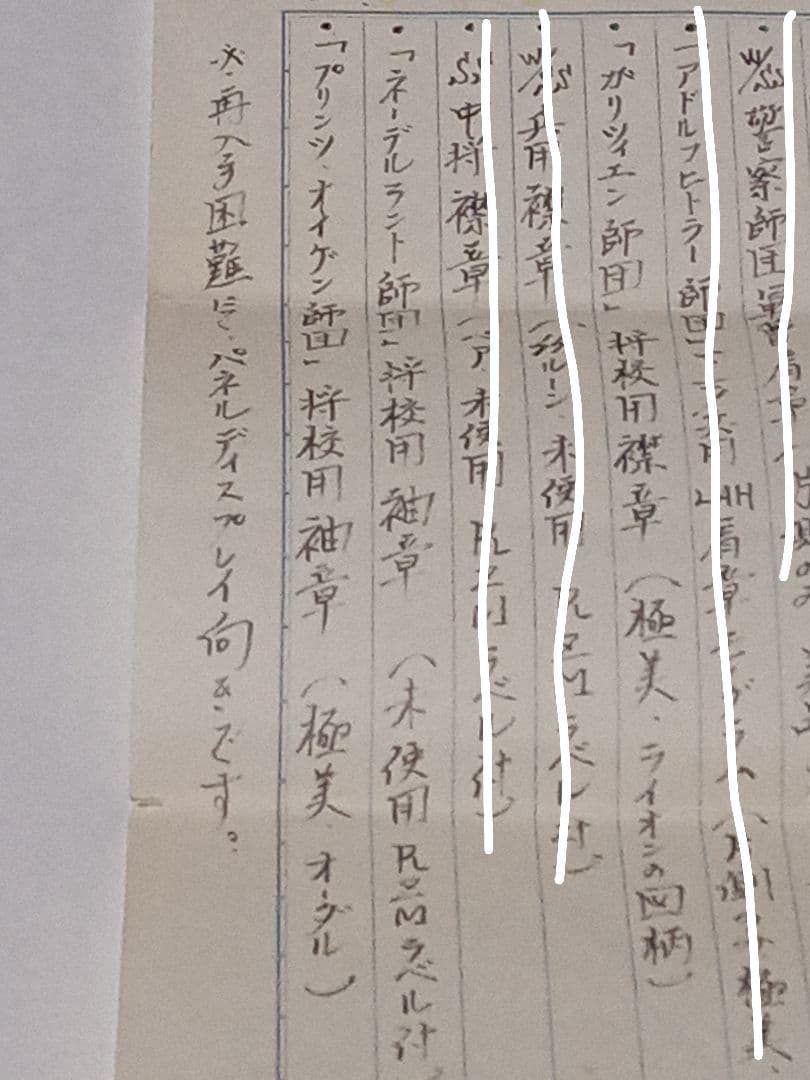 ・W/SS警察師団
・「アドルフヒトラー師団」 用LAH肩章モノグラム(片側のみ極美、
・「ガリツィエン師団」将校用襟章(極美・ライオンの図柄)
・W/SS兵用襟章(ルーン・未使用 RZMラベル付)
・SS中将襟章(ペア・未使用 RZMラベル付)
・「ネーデルラント師団」将校用袖章(未使用RZMラベル付
・「プリンツ・オイゲン師団」将校用袖章(極美・オーダル)
※再入手困難にき、パネルディスプレイ向きです。